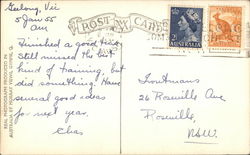 Geelong, Vic
5 Jan 55
am
POST CARD
Finished a good trip
Still missed the best
kind of training, but
did something. Have
several good ideas
for next year.
Chas
AUSTRALIA
AUSTRALIA
Troutmans
26 Roseville Ave
Roseville,
N.S.W.
REAL PHOTOGRAPH PRODUCED IN
AUSTRALIA BY MURRAY VIEWS, GYMPIE, Q.